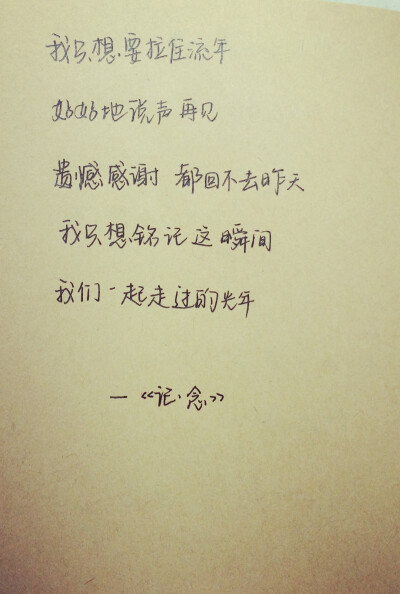 我只想要拉住流年
好好地说声再见
遗憾感谢 都回不去昨天
我只想铭记这瞬间
我们一起走过的光年
—《记·念》